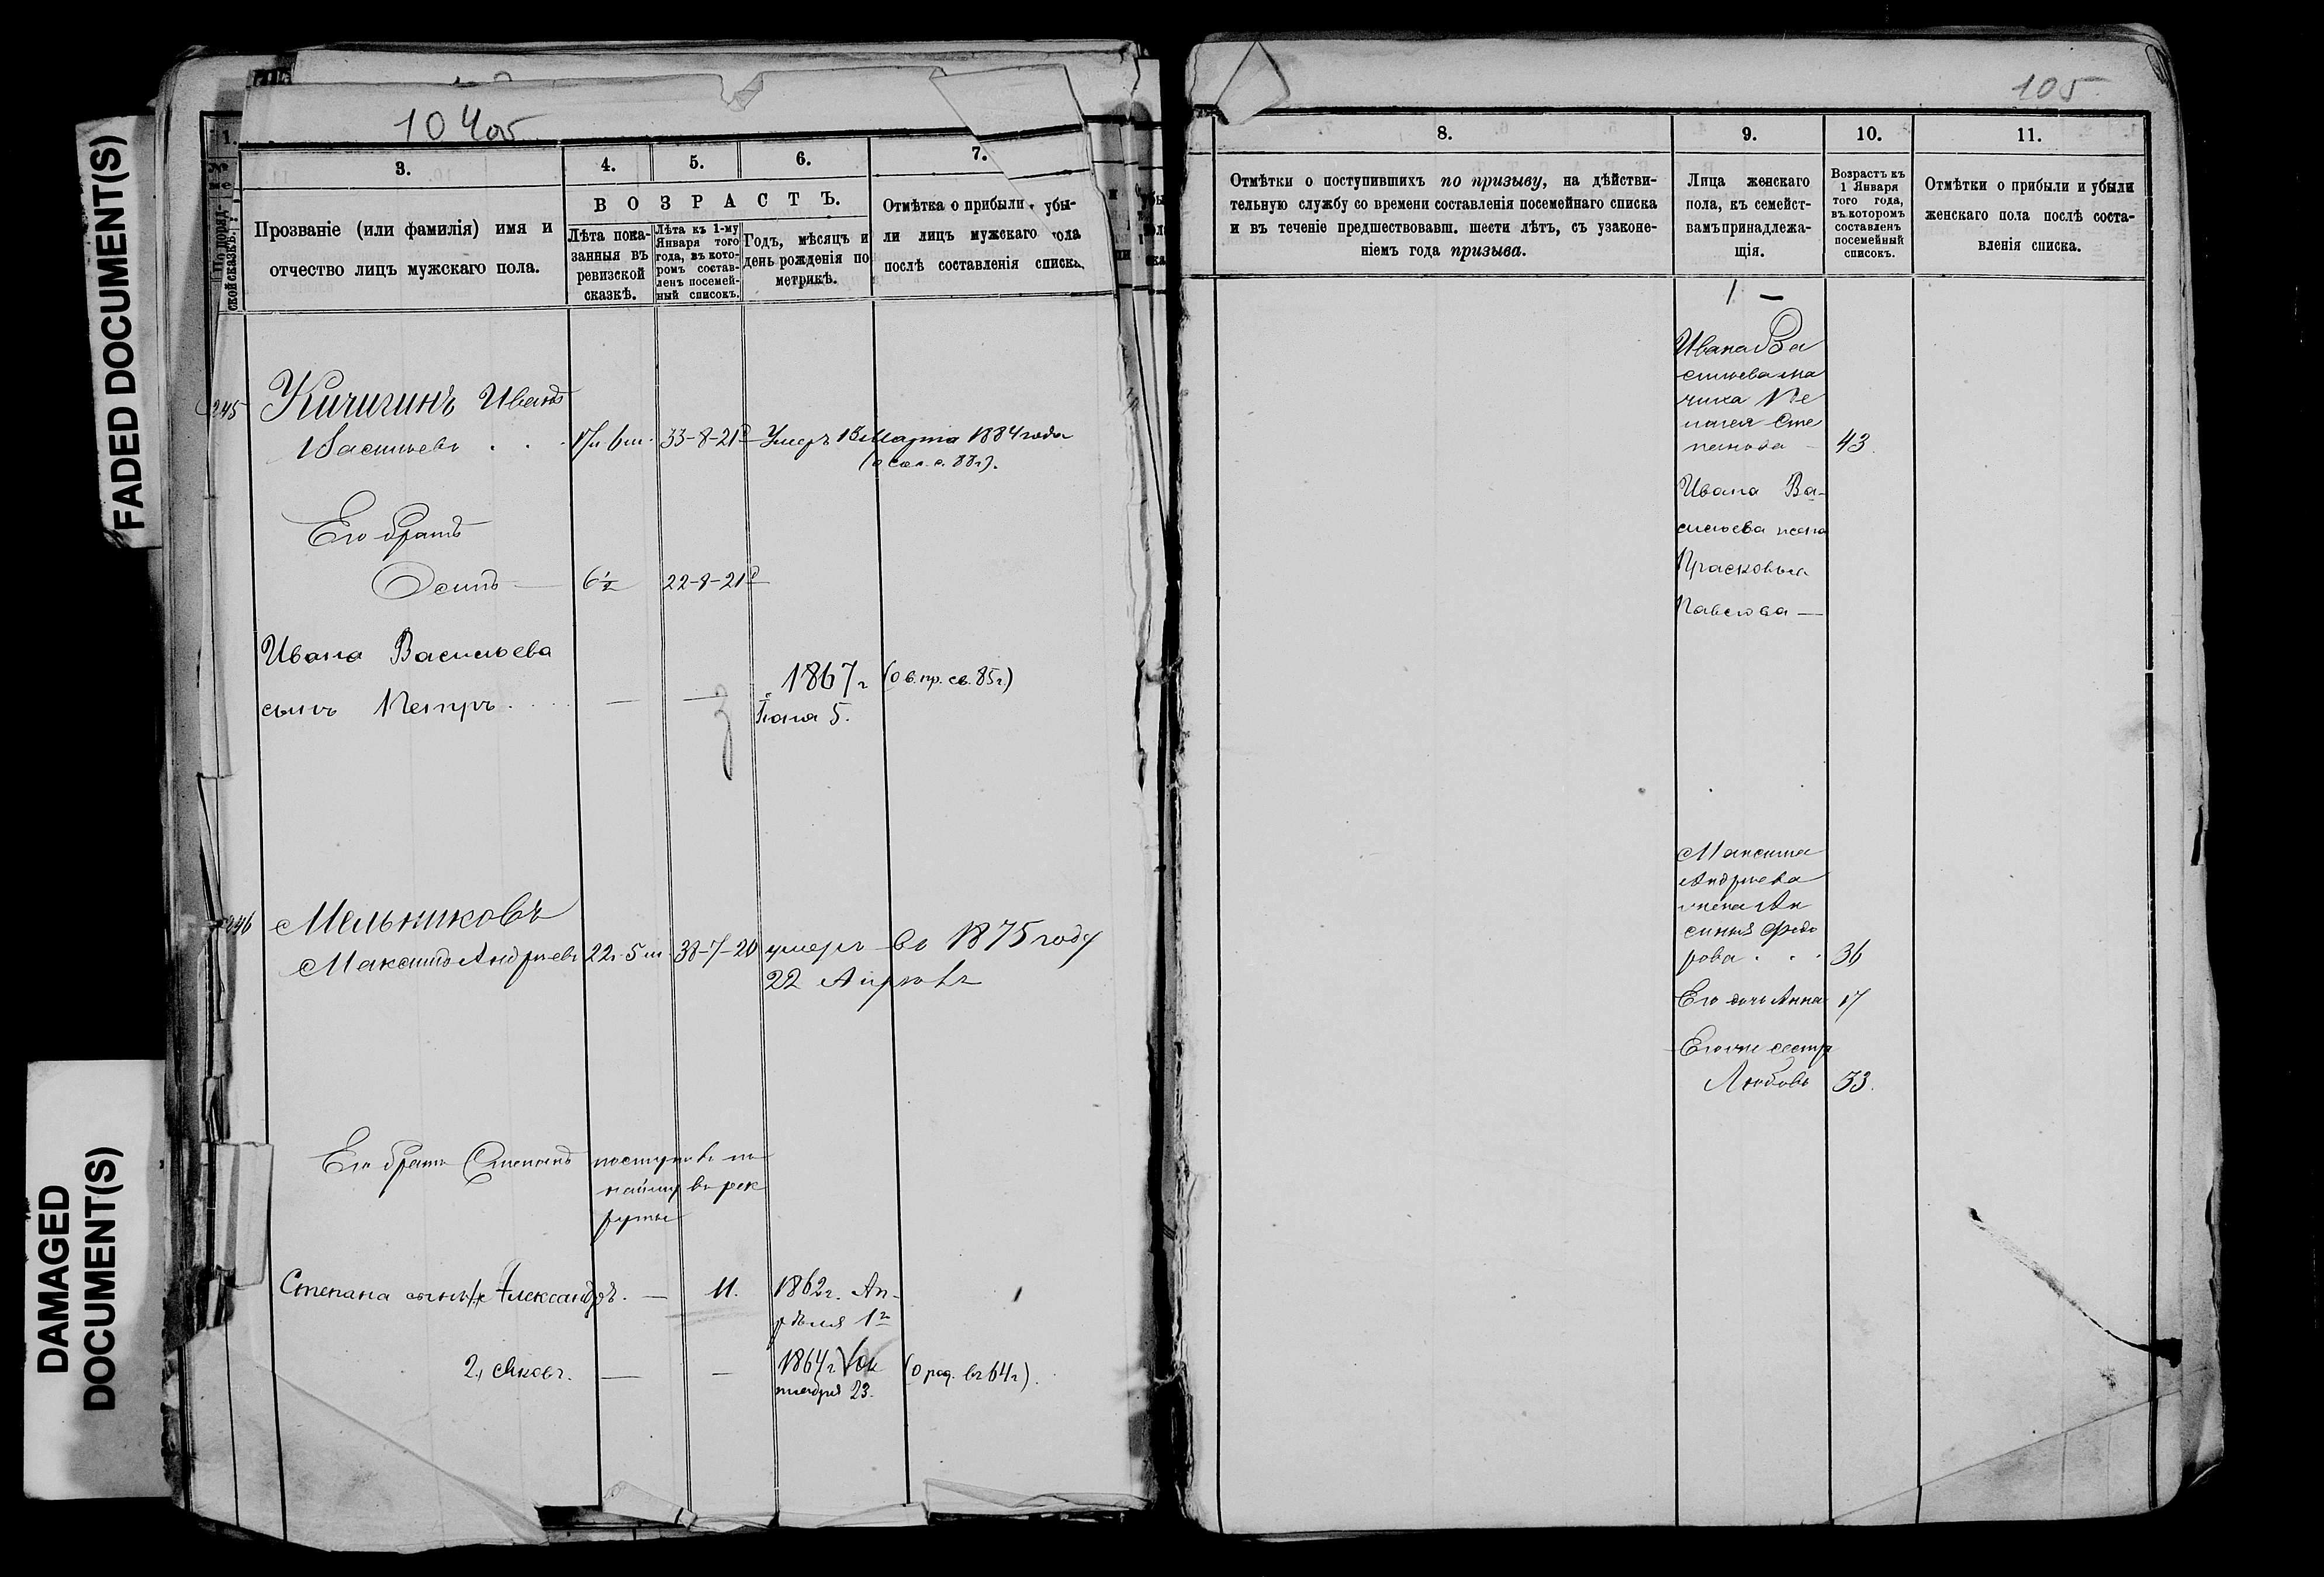 FADED DOCUMENT(S)
DAMAGED
DOCUMENT(S)
104об
1.
3.
4.
5.
6.
7.
Прозваніе (или фамилія) имя и
отчество лицъ мужскаго пола.
ВОЗРАСТЪ.
Лѣта пока-
занныя въ
ревизской
сказкѣ.
Лѣта къ 1-му
Января того
года, въ кото-
ромъ состав-
ленъ посемей-
ный списокъ.
Годъ, мѣсяцъ и
день рожденія по
метрикѣ.
Отмѣтка о прибыли убы-
ли лицъ мужскаго пола
послѣ составленія списка.
245
Кичигинъ Иванъ
Васильевъ . . . 17л 6м. 33-8-21 Умеръ 18 Марта 1884 года
Его братъ
Осипъ — 6½ 22-8-21
Ивана Васильева
сынъ Петръ. — — 1867г (о в. пр. св. 85г.)
5.
246 Мельниковъ
Максимъ Андреевъ 22. 5м. 38-7-20 умеръ въ 1875 году
22
Его братъ Степанъ поступилъ по
найму въ рек
руты
Степана сынъ Александръ. — 11. 1862г. Ап-
рѣля 1
2, Яковъ. — — 1864г. Ок (о род. въ 64г).
тября 23.
105
8.
9.
10.
11.
Отмѣтки о поступившихъ по призыву, на дѣйстви-
тельную службу со времени составленія посемейнаго списка
и въ теченіе предшествовавш. шести лѣтъ, съ узаконе-
ніемъ года призыва.
Лица женскаго
пола, къ семейст-
вамъ принадлежа-
щія.
Возрастъ къ
1 Января
того года,
въ которомъ
составленъ
посемейный
списокъ.
Отмѣтки о прибыли и убыли
женскаго пола послѣ соста-
вленія списка.
Ивана Ва
сильева ма
чиха Пе
лагея Сте
панова — 43.
Ивана Ва-
сильева жена
Прасковья
Павлова —
Максима
Андреева
жена Ак
синья Федо
рова . . . 36
Его дочь Анна 17
Его же сестра
Любовь 33.